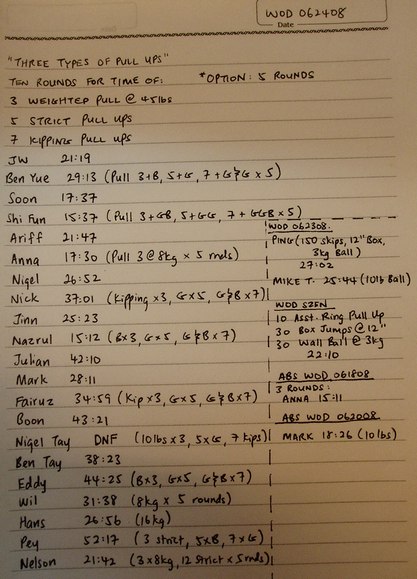 WOD 062408
Date
"THREE TYPES OF PULL UPS"
TEN ROUNDS FOR TIME OF: *OPTION: 5 ROUNDS
3 WEIGHTED PULL @ 45lbs
5 STRICT PULL UPS
7 KIPPING PULL UPS
JW 21:19
Ben Yue 29:13 (Pull 3+B, 5+G, 7+G&G x 5)
Soon 17:37
Shi Fun 15:37 (Pull 3+GB, 5+GG, 7+GGB x 5)
Ariff 21:47
Anna 17:30 (Pull 3 @ 8kg x 5 rnds)
Nigel 26:52
Nick 37:01 (Kipping x3, Gx5, G&B x 7)
Jinn 25:23
Nazrul 15:12 (Bx3, Gx5, G&B x 7)
Julian 42:10
Mark 28:11
Fairuz 34:59 (Kip x3, Gx5, G&B x 7)
Boon 43:21
Nigel Tay DNF (10lbs x 3, 5xG, 7 kips)
Ben Tay 38:23
Eddy 44:25 (Bx3, Gx5, G&B x 7)
Wil 31:38 (8kg x 5 rounds)
Hans 26:56 (16kg)
Pey 52:17 (3 strict, 5xB, 7xG)
Nelson 21:42 (3x8kg, 12 Strict x 5 rnds)
WOD 062308
PING (150 skips, 12" Box,
3kg Ball)
27:02
MIKE T. 25:44 (10lb Ball)
WOD SZFN
10 Asst. Ring Pull Up
30 Box Jumps @ 12"
30 Wall Ball @ 3kg
22:10
ABS WOD 061808
3 ROUNDS:
ANNA 15:11
ABS WOD 062008
MARK 18:26 (10lbs)